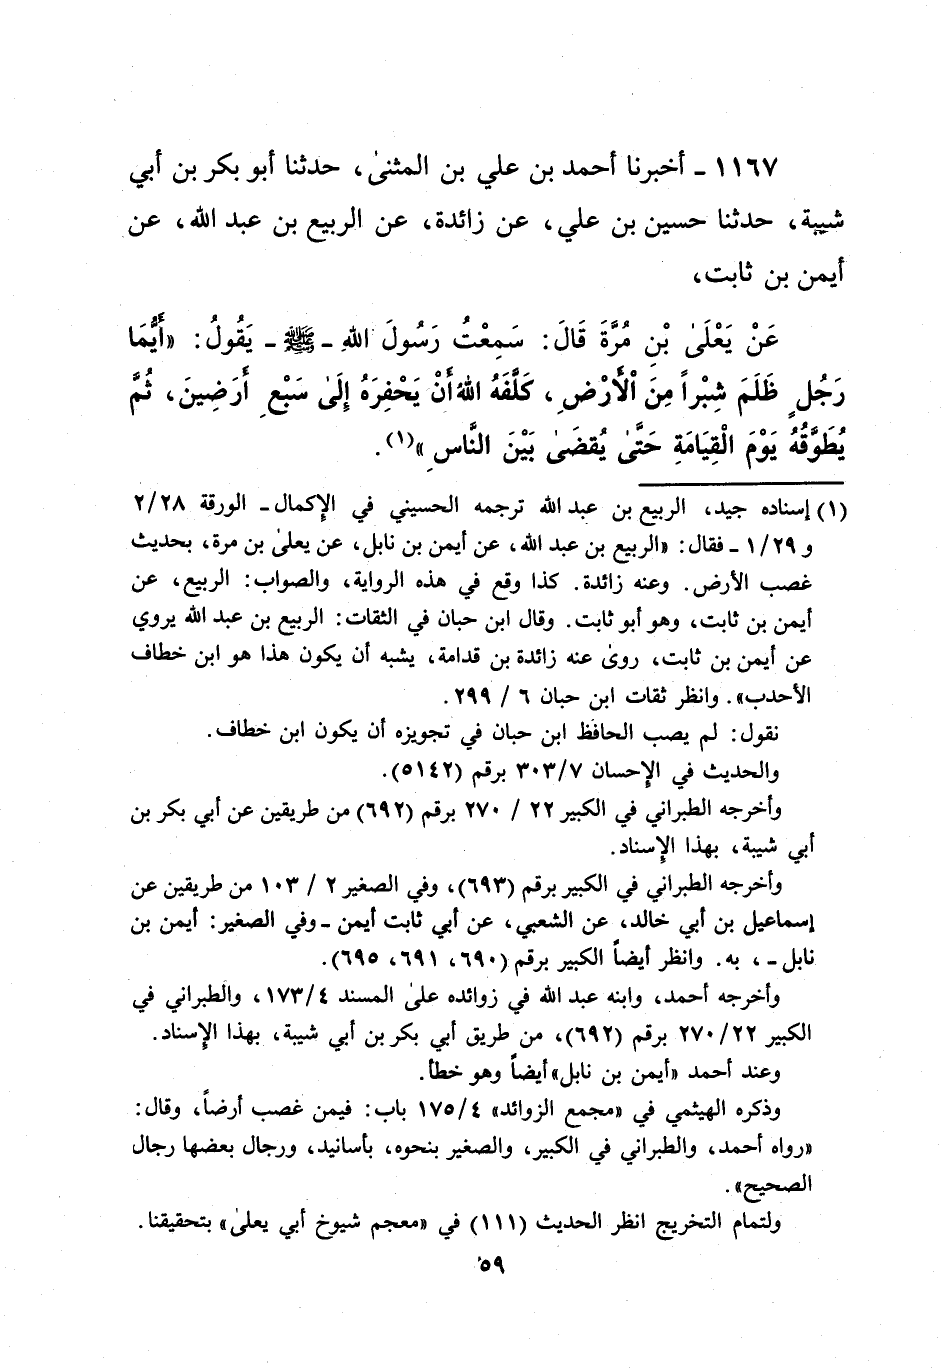 ١١٦٧ - أخبرنا أحمد بن علي بن المثنىٰ، حدثنا أبو بكر بن أبي
شيبة، حدثنا حسين بن علي، عن زائدة، عن الربيع بن عبد الله، عن
أيمن بن ثابت،
عَنْ يَعْلَىٰ بْنِ مُرَّةَ قَالَ: سَمِعْتُ رَسُولَ اللهِ - ﷺ - يَقُولُ: «أَيُّمَا
رَجُلٍ ظَلَمَ شِبْراً مِنَ الْأَرْضِ، كَلَّفَهُ اللهُ أَنْ يَحْفِرَهُ إِلَىٰ سَبْعِ أَرَضِينَ، ثُمَّ
يُطَوَّقُهُ يَوْمَ الْقِيَامَةِ حَتَّىٰ يُقضَىٰ بَيْنَ النَّاسِ»(١).
(١) إسناده جيد، الربيع بن عبد الله ترجمه الحسيني في الإكمال - الورقة ٢/٢٨
و ١/٢٩ - فقال: «الربيع بن عبد الله، عن أيمن بن نابل، عن يعلىٰ بن مرة، بحديث
غصب الأرض. وعنه زائدة. كذا وقع في هذه الرواية، والصواب: الربيع، عن
أيمن بن ثابت، وهو أبو ثابت. وقال ابن حبان في الثقات: الربيع بن عبد الله يروي
عن أيمن بن ثابت، روىٰ عنه زائدة بن قدامة، يشبه أن يكون هذا هو ابن خطاف
الأحدب». وانظر ثقات ابن حبان ٦ / ٢٩٩.
نقول: لم يصب الحافظ ابن حبان في تجويزه أن يكون ابن خطاف.
والحديث في الإحسان ٣٠٣/٧ برقم (٥١٤٢).
وأخرجه الطبراني في الكبير ٢٢ / ٢٧٠ برقم (٦٩٢) من طريقين عن أبي بكر بن
أبي شيبة، بهذا الإسناد.
وأخرجه الطبراني في الكبير برقم (٦٩٣)، وفي الصغير ٢ / ١٠٣ من طريقين عن
إسماعيل بن أبي خالد، عن الشعبي، عن أبي ثابت أيمن - وفي الصغير: أيمن بن
نابل -، به. وانظر أيضاً الكبير برقم (٦٩٠، ٦٩١، ٦٩٥).
وأخرجه أحمد، وابنه عبد الله في زوائده علىٰ المسند ١٧٣/٤، والطبراني في
الكبير ٢٧٠/٢٢ برقم (٦٩٢)، من طريق أبي بكر بن أبي شيبة، بهذا الإسناد.
وعند أحمد «أيمن بن نابل» أيضاً وهو خطأ.
وذكره الهيثمي في «مجمع الزوائد» ١٧٥/٤ باب: فيمن غصب أرضاً، وقال:
«رواه أحمد، والطبراني في الكبير، والصغير بنحوه، بأسانيد، ورجال بعضها رجال
الصحيح».
ولتمام التخريج انظر الحديث (١١١) في «معجم شيوخ أبي يعلىٰ» بتحقيقنا.
٥٩